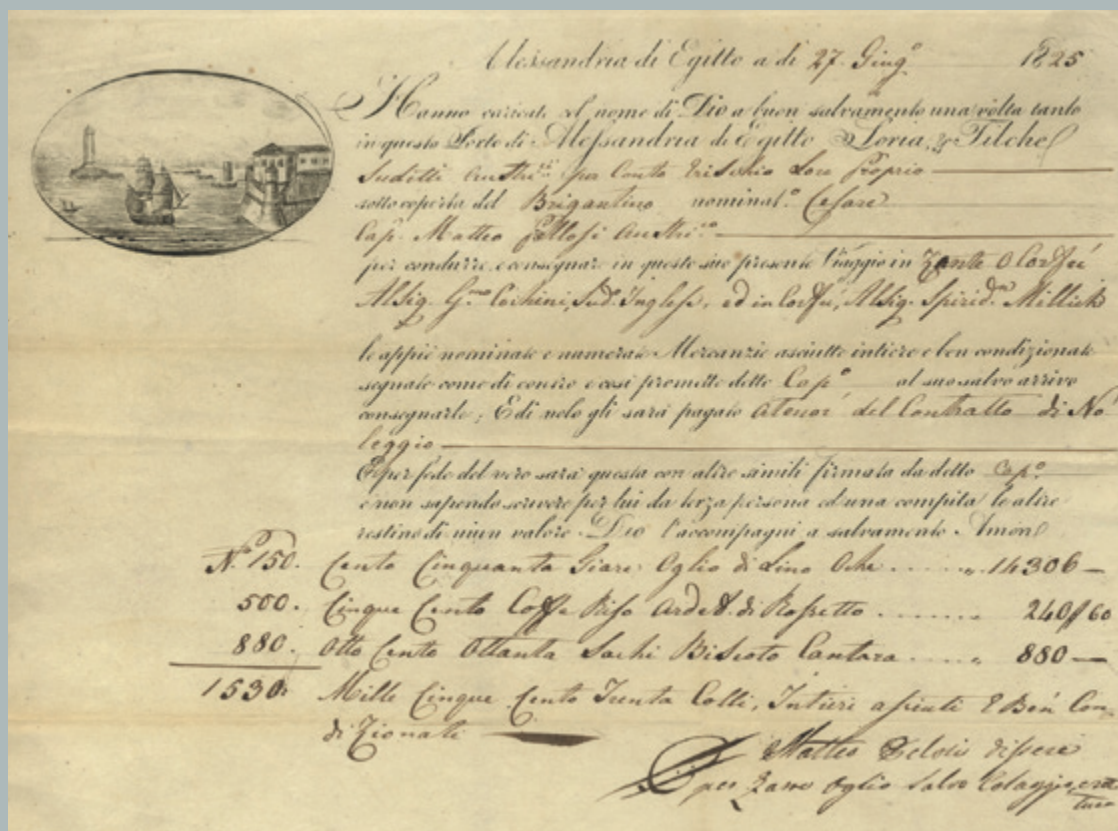 Alessandria di Egitto a di 27 Giug.º 1825
Hanno caricato al nome di Dio a buon salvamento una volta tanto
in questo Porto di Alessandria di Egitto Loria, & Tilche
Suditti Austri.ci per Conto Erischio Loro Proprio
sotto coperta del Brigantino nominat.º Cesare
Cap. Matteo Austri.co
per condurre, e consegnare in questo suo presente Viaggio in Zante O Corfú
Al Sig. Sud.º Inglese, ed in Corfu, Al Sig. Spirid.ne
le appiè nominate e numerate Mercanzie asciutte intiere e ben condizionate
segnate come di contro e così promette detto Cap.º al suo salvo arrivo
consegnarle; E di nolo gli sarà pagato a tenor del Contratto di No
leggio
E per fede del vero sarà questa con altre simili firmata da detto Cap.º
e non sapendo scrivere per lui da terza persona ed una compita le altre
restino di niun valore. Dio l'accompagni a salvamento Amen
N.º 150. Cento Cinquanta Giare Oglio di Lino Oke 14306
500. Cinque Cento Coffe Riso Ardeb. di Rossetto 240 60
880. Otto Cento Ottanta Sachi Biscoto Cantara 880
1530. Mille Cinque Cento Trenta Colli, Intieri E Ben Con
dizionati
Matteo
per Oglio Salvo Colaggio